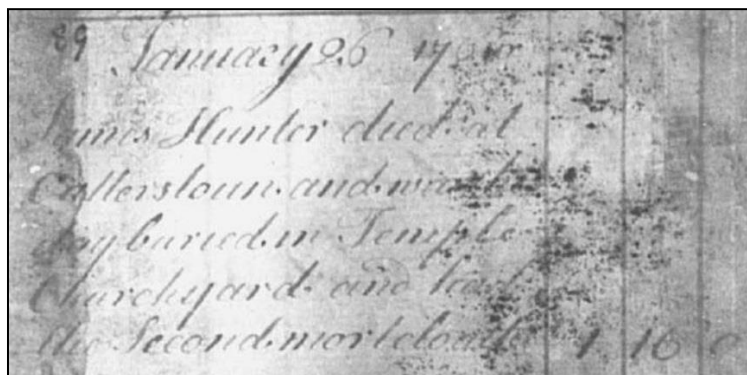 89 January 26
James Hunter died at
Cutlerstoun and was
day buried in Temple
Churchyard and had
the Second mortcloath 1 16 0